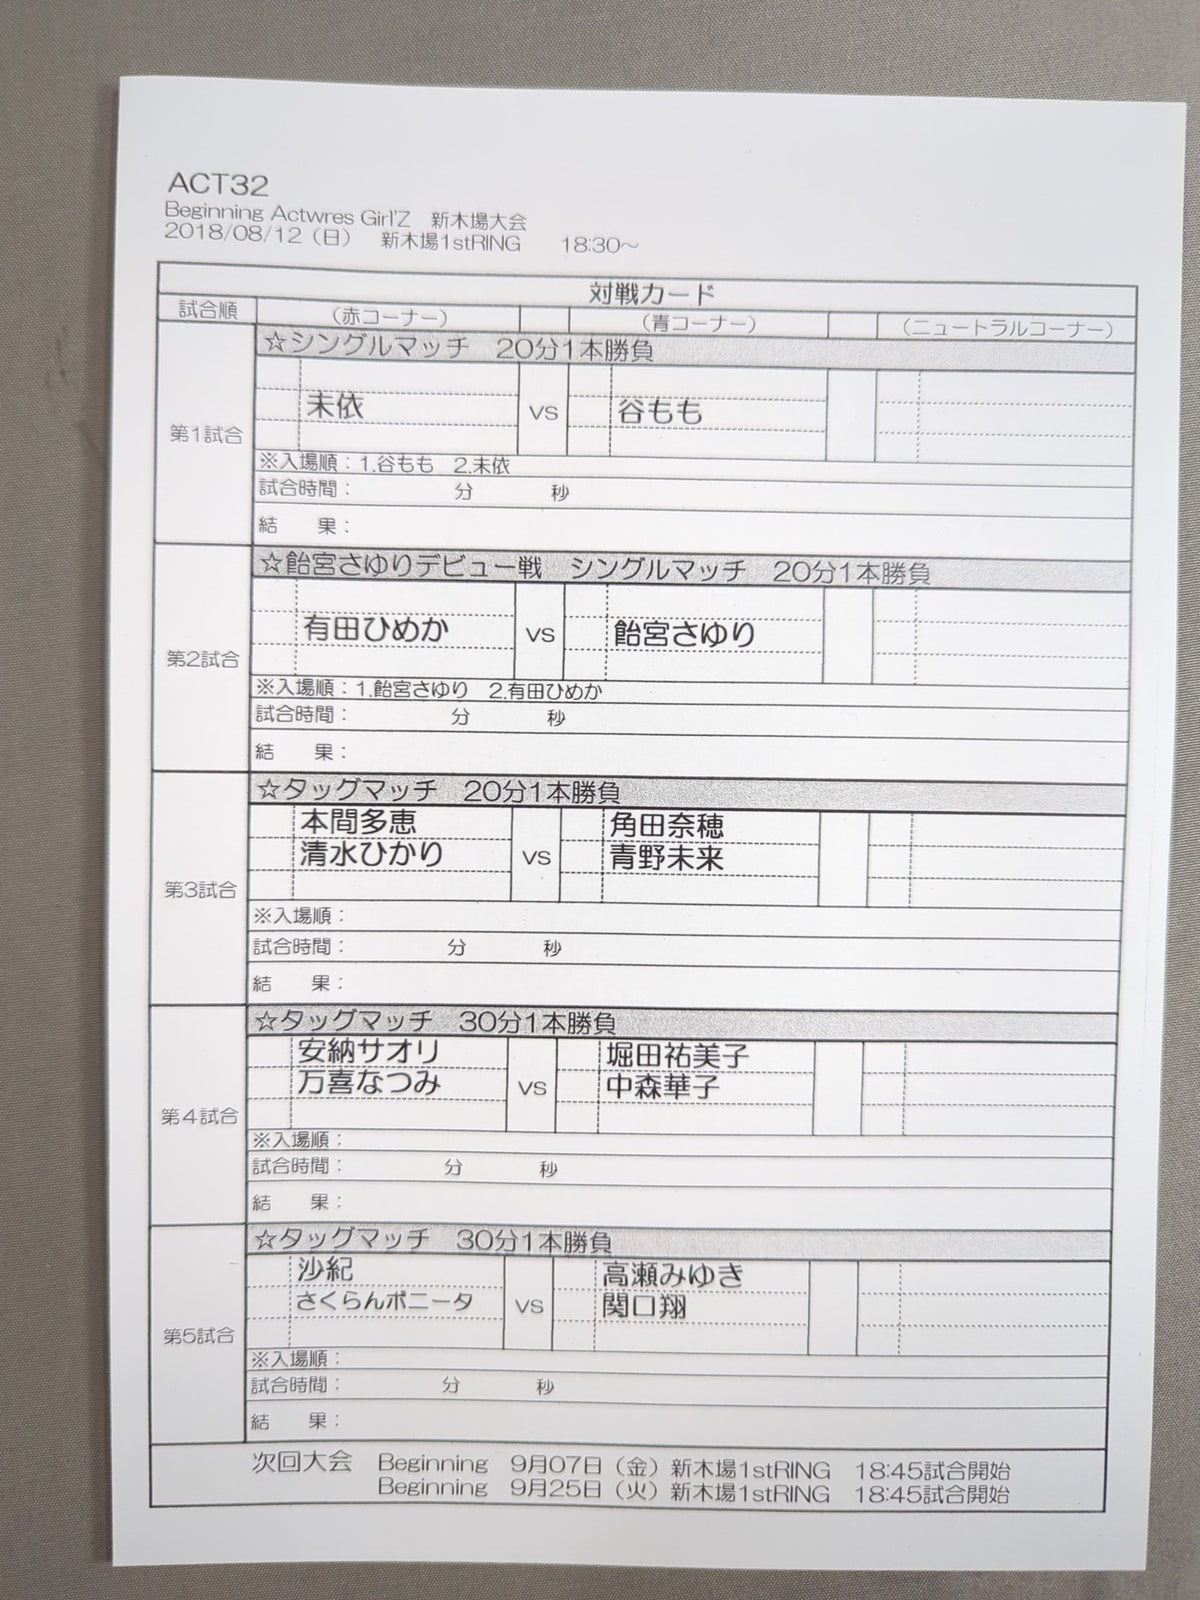 ACT32
Beginning Actwres Girl'Z　新木場大会
2018/08/12（日）　新木場1stRING　18:30～
対戦カード
試合順　（赤コーナー）　（青コーナー）　（ニュートラルコーナー）
☆シングルマッチ　20分1本勝負
第1試合　未依　VS　谷もも
※入場順：1.谷もも　2.未依
試合時間：　分　秒
結　果：
☆飴宮さゆりデビュー戦　シングルマッチ　20分1本勝負
第2試合　有田ひめか　VS　飴宮さゆり
※入場順：1.飴宮さゆり　2.有田ひめか
試合時間：　分　秒
結　果：
☆タッグマッチ　20分1本勝負
本間多恵　角田奈穂
第3試合　清水ひかり　VS　青野未来
※入場順：
試合時間：　分　秒
結　果：
☆タッグマッチ　30分1本勝負
安納サオリ　堀田祐美子
第4試合　万喜なつみ　VS　中森華子
※入場順：
試合時間：　分　秒
結　果：
☆タッグマッチ　30分1本勝負
沙紀　高瀬みゆき
第5試合　さくらんボニータ　VS　関口翔
※入場順：
試合時間：　分　秒
結　果：
次回大会　Beginning　9月07日（金）新木場1stRING　18:45試合開始
Beginning　9月25日（火）新木場1stRING　18:45試合開始